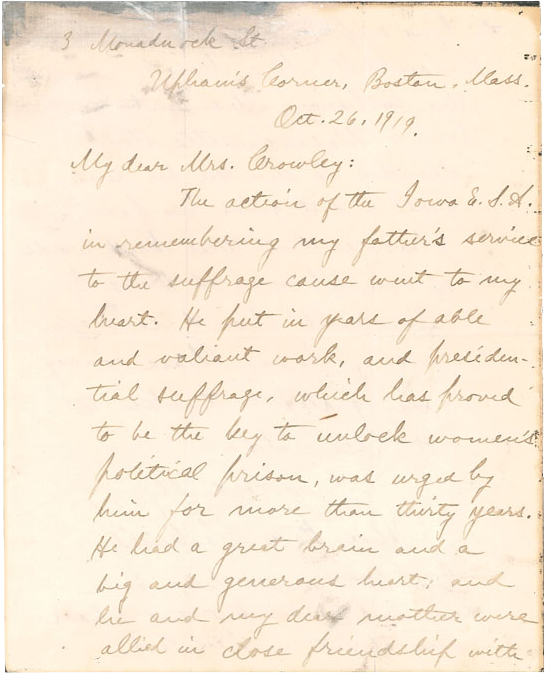 3 Monadnock St.
Upham's Corner, Boston, Mass.
Oct. 26, 1919.
My dear Mrs. Crowley:
The action of the Iowa E. S. A.
in remembering my father's service
to the suffrage cause went to my
heart. He put in years of able
and valiant work, and presiden-
tial suffrage, which has proved
to be the key to unlock women's
political prison, was urged by
him for more than thirty years.
He had a great brain and a
big and generous heart; and
he and my dear mother were
allied in close friendship with